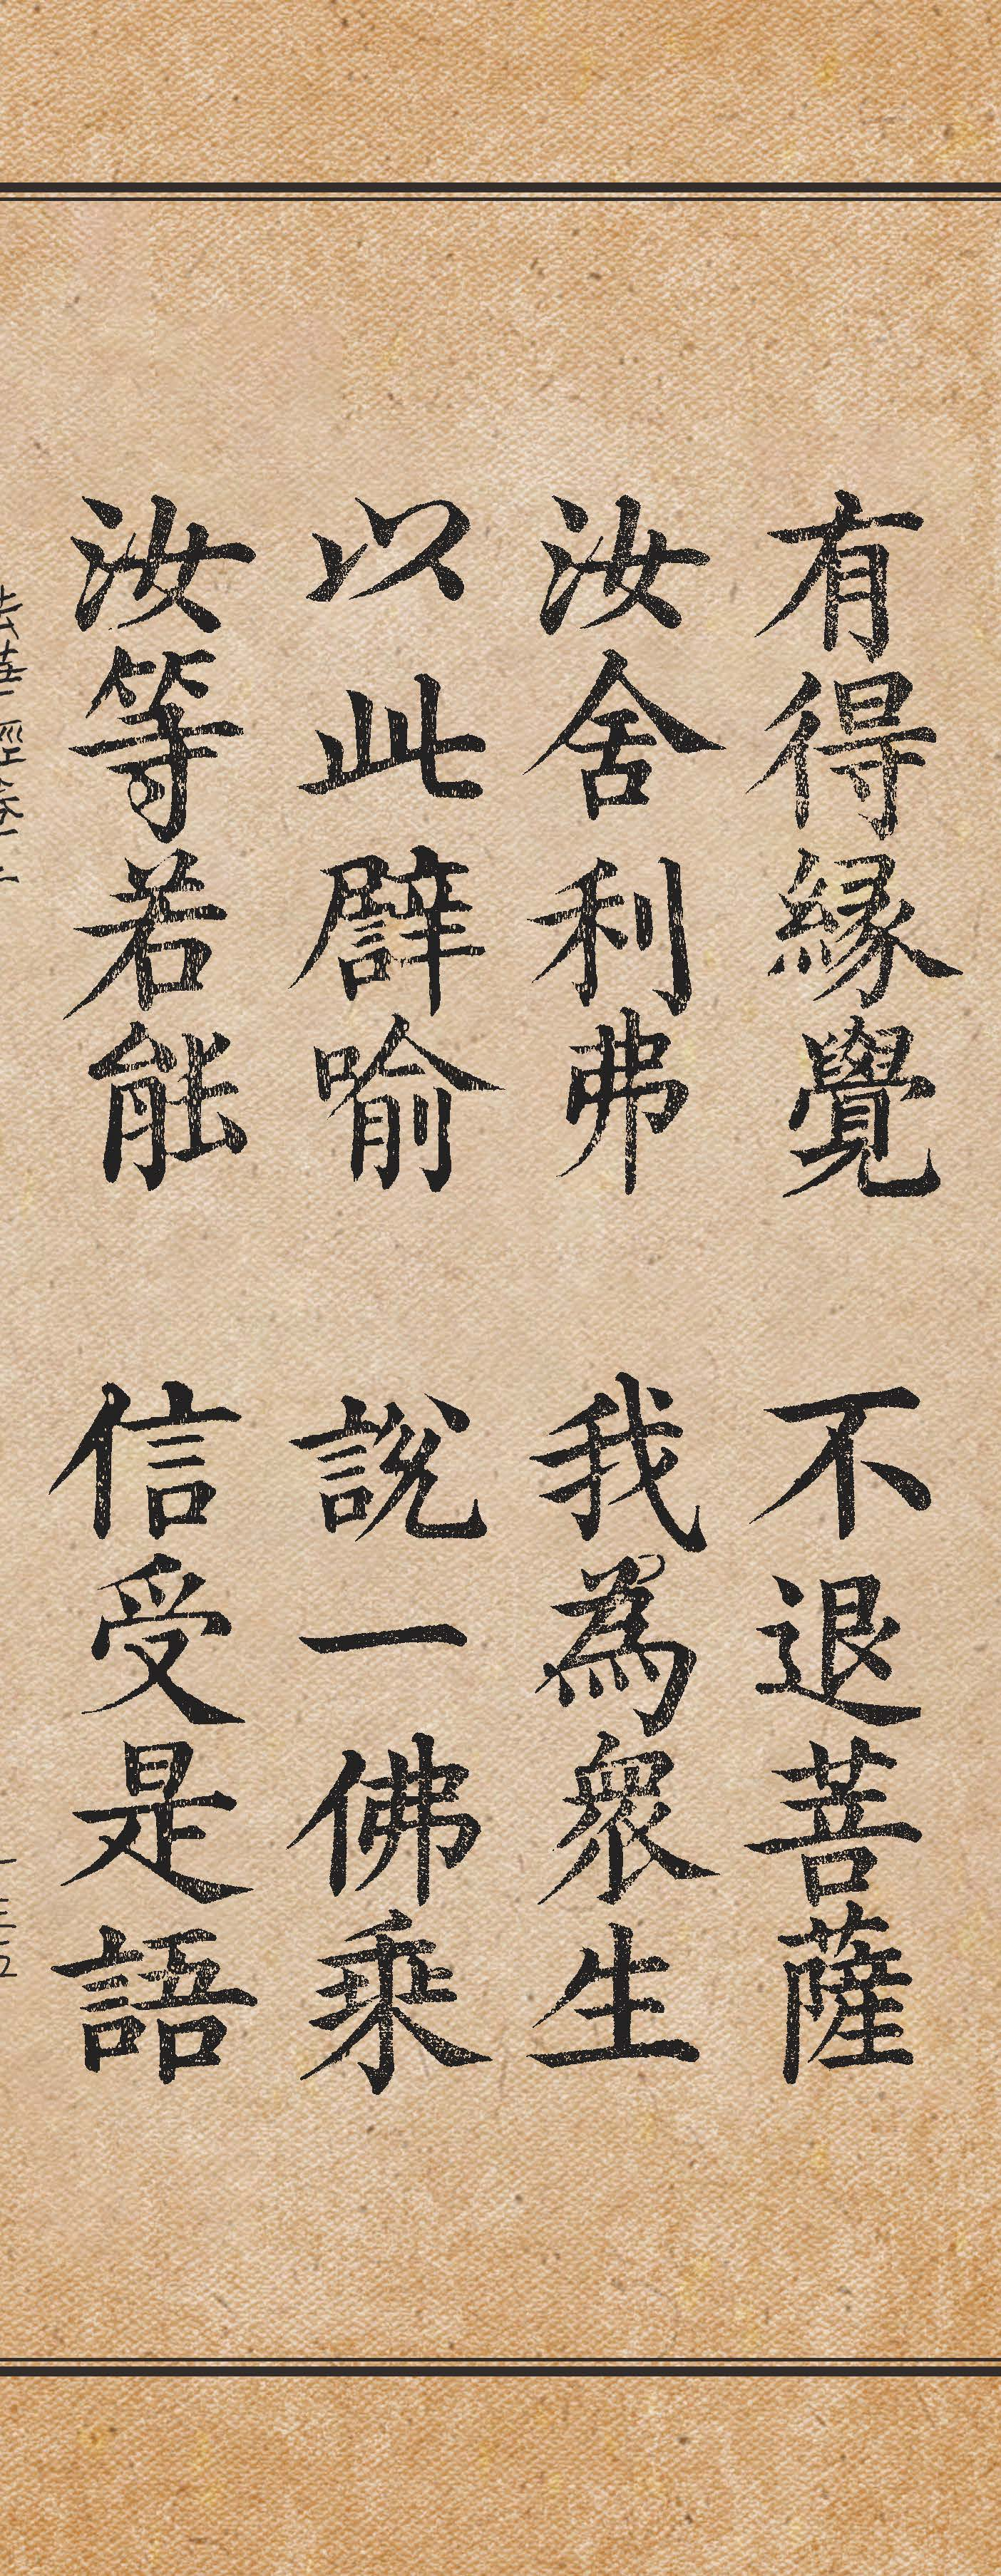 有得緣覺 不退菩薩
汝舍利弗 我為衆生
以此譬喻 說一佛乘
汝等若能 信受是語